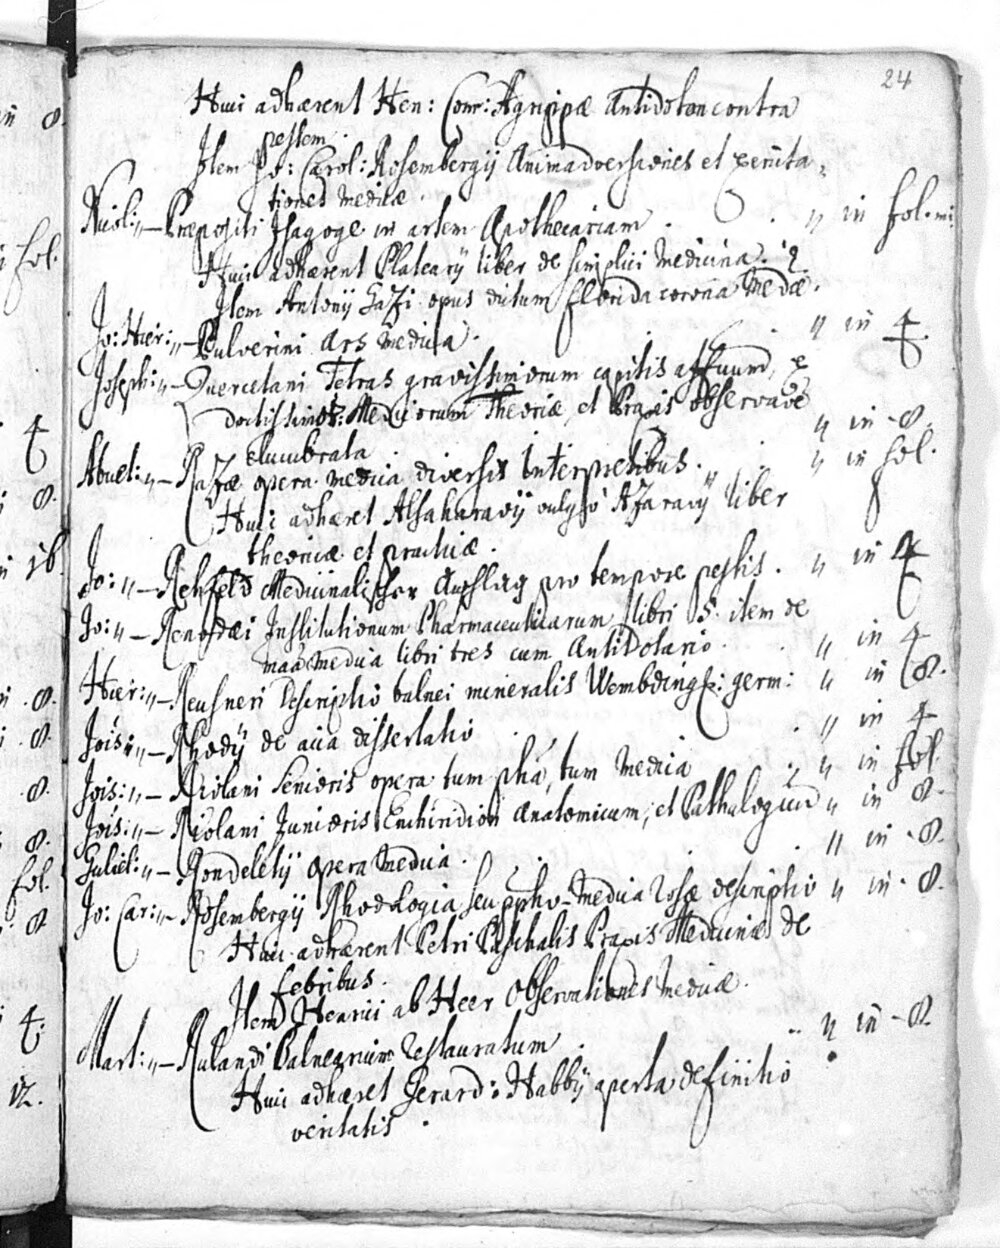 24
Huic adhærent Hen: Conr: Agrippæ Antidoton contra
pestem.
Item Jo: Carol: Rosembergij Animadversiones et exercita-
tiones Medicæ.
Nicol: „ — Præpositi Isagoge in artem Apothecariam . „ in fol. mi:
Huic adhærent Platearij liber de simplici Medicina.
Item Antonij Gazi opus dictum florida corona Medæ.
Jo: Hier: „ — Pulverini Ars Medica . „ in 4
Joseph: „ — Quercetani Tetras gravissimorum capitis affuum, ex
doctissimor: Medicorum Theoriæ, et Praxis observaoē
elucubrata . „ in 8.
Abuet: „ — Razæ opera medica diversis Interpretibus . „ in fol.
Huic adhæret Alsaharavij vulgò Azaravij liber
theoricæ et practicæ .
Jo: „ — Rehfeld Medicinalischer Anschlag pro tempore pestis . „ in 4
Jo: „ — Renodæi Institutionum Pharmaceuticarum libri 5. item de
maã Medica libri tres cum Antidotario . „ in 4
Hier: „ — Reusneri Descriptio balnei mineralis Wembding: germ: „ in 8.
Jois: „ — Rhodij de acia dissertatio . „ in 4
Jois: „ — Riolani Senioris opera tum phã, tum Medica . „ in fol.
Jois: „ — Riolani Junioris Enchiridion Anatomicum, et Pathologicũ „ in 8.
Guliel: „ — Rondeletij opera Medica . „ in 8.
Jo: Car: „ — Rosembergij Rhodologia seu ppho-Medica Rosæ descriptio „ in 8.
Huic adhærent Petri Paschalis Praxis Medicinæ de
febribus .
Item Henrici ab Heer Observationes Medicæ .
Mart: „ — Rulandi Balnearium restauratum . „ in 8.
Huic adhæret Gerard: Habbij aperta definitio
veritatis .